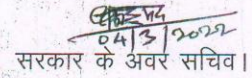 04/3/2022
सरकार के अवर सचिव